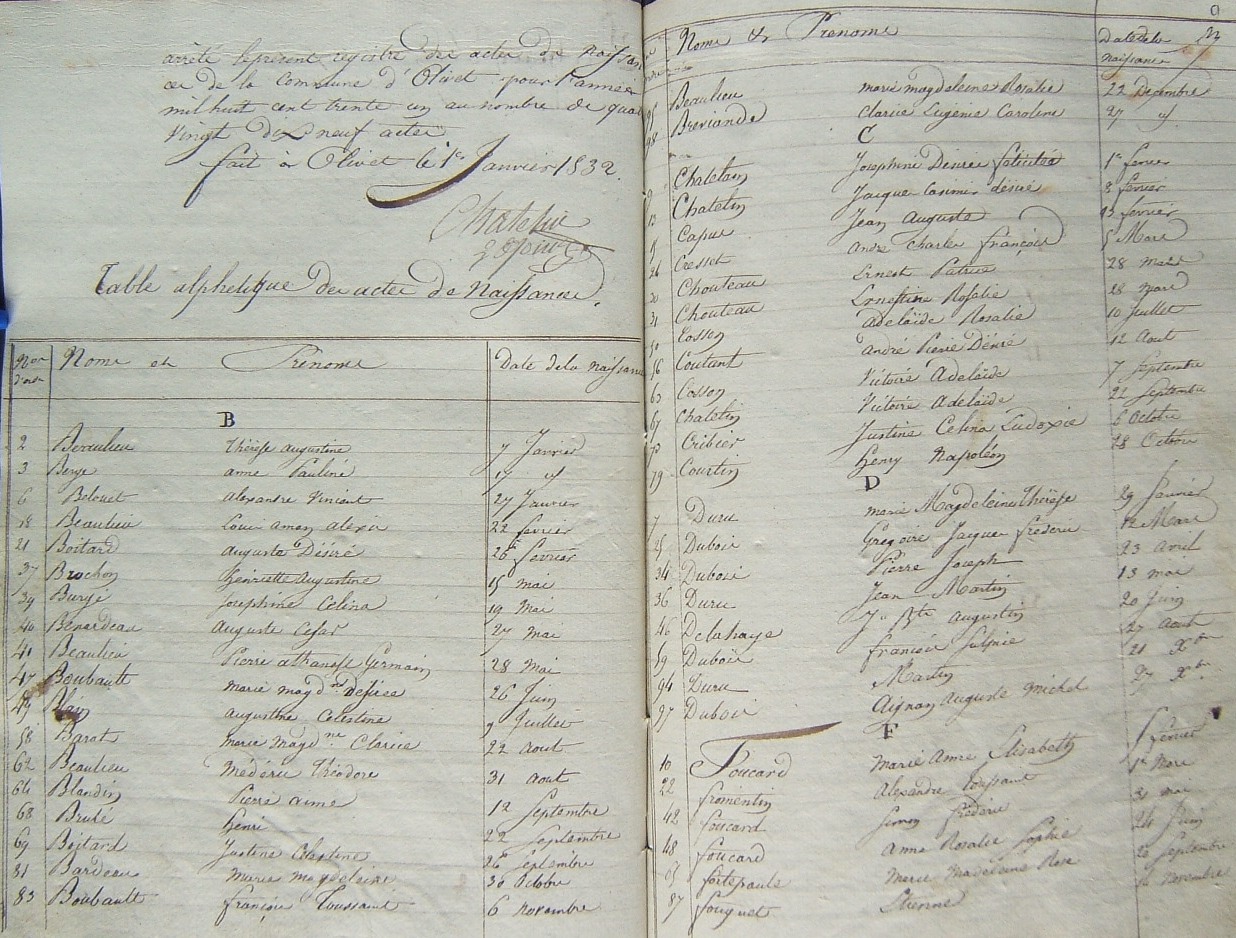 arrêté le présent registre des actes de Naissan
ces de la Commune d'Olivet pour l'année
mil huit cent trente un au nombre de quat
Vingt dix neuf actes
fait à Olivet le 1er Janvier 1832.
Table alphabetique des actes de Naissances.
Nos d'ordre Noms et Prénoms Date de la naissance
B
2 Beaulieu Thérèse Augustine 7 Janvier
3 Berge anne Pauline 17 d
6 Belouet Alexandre Vincent 27 Janvier
18 Beaulieu Louis amon alexis 22 fevrier
21 Boitard auguste Désiré 26 fevrier
37 Brochon henriette Augustine 15 mai
39 Burgé Josephine Celina 19 Mai
40 Benardeau Auguste Cesar 27 mai
41 Beaulieu Pierre athanase Germain 28 Mai
47 Boubault marie magdne desirée 26 Juin
49 Blain augustine Celestine 9 Juillet
58 Barat marie magdne Clarice 22 aout
62 Beaulieu Médéric Théodore 31 aout
64 Blandin Pierre aimé 12 Septembre
68 Brulé henri 22 Septembre
69 Boitard Justine Celestine 26 Septembre
81 Bardeau Marie magdeleine 30 Octobre
83 Boubault françois Toussaint 6 novembre
Noms & Prenoms date de la naissance
95 Beaulieu marie magdeleine Rosalie 22 Decembre
98 Breviande Clarice Eugenie Caroline 27 d
C
Chaletain Josephine Désirée félicitée 1er fevrier
13 Chaletin Jacque Casimir désiré 8 fevrier
Capus Jean Auguste 13 fevrier
26 Cresset andré charles françois 5 Mars
30 Chouteau Ernest Patrice 28 mars
31 Chouteau Ernestine Rosalie 28 mars
50 Cosson adelaïde Rosalie 10 Juillet
56 Coutant andré Pierre Désiré 12 Aout
63 Cosson Victoire Adelaïde 7 Septembre
67 Chaletin Victoire adelaïde 21 Septembre
73 Cribier Justine Celina Eudoxie 6 Octobre
79 Courtin henry Napoléon 28 Octobre
D
7 Duru marie Magdeleine Thérèse 29 Janvier
25 Dubois Gregoire Jacques frederic 12 Mars
34 Dubois Pierre Joseph 23 avril
36 Duru Jean Martin 13 mai
46 Delahaye Jn Bte Augustin 20 Juin
59 Dubois françois Sulpice 27 Aout
94 Duru Martin 21 Xbre
97 Dubois Aignan Auguste Michel 27 Xbre
F
10 Foucard Marie Anne Elisabeth fevrier
22 fromentin Alexandre Toussaint 1er Mars
42 foucard Simon frédéric 31 mai
48 foucard Anne Rosalie Sophie 24 Juin
65 fortepaule Marie Madeleine Rose 20 Septembre
87 fouquet Etienne novembre